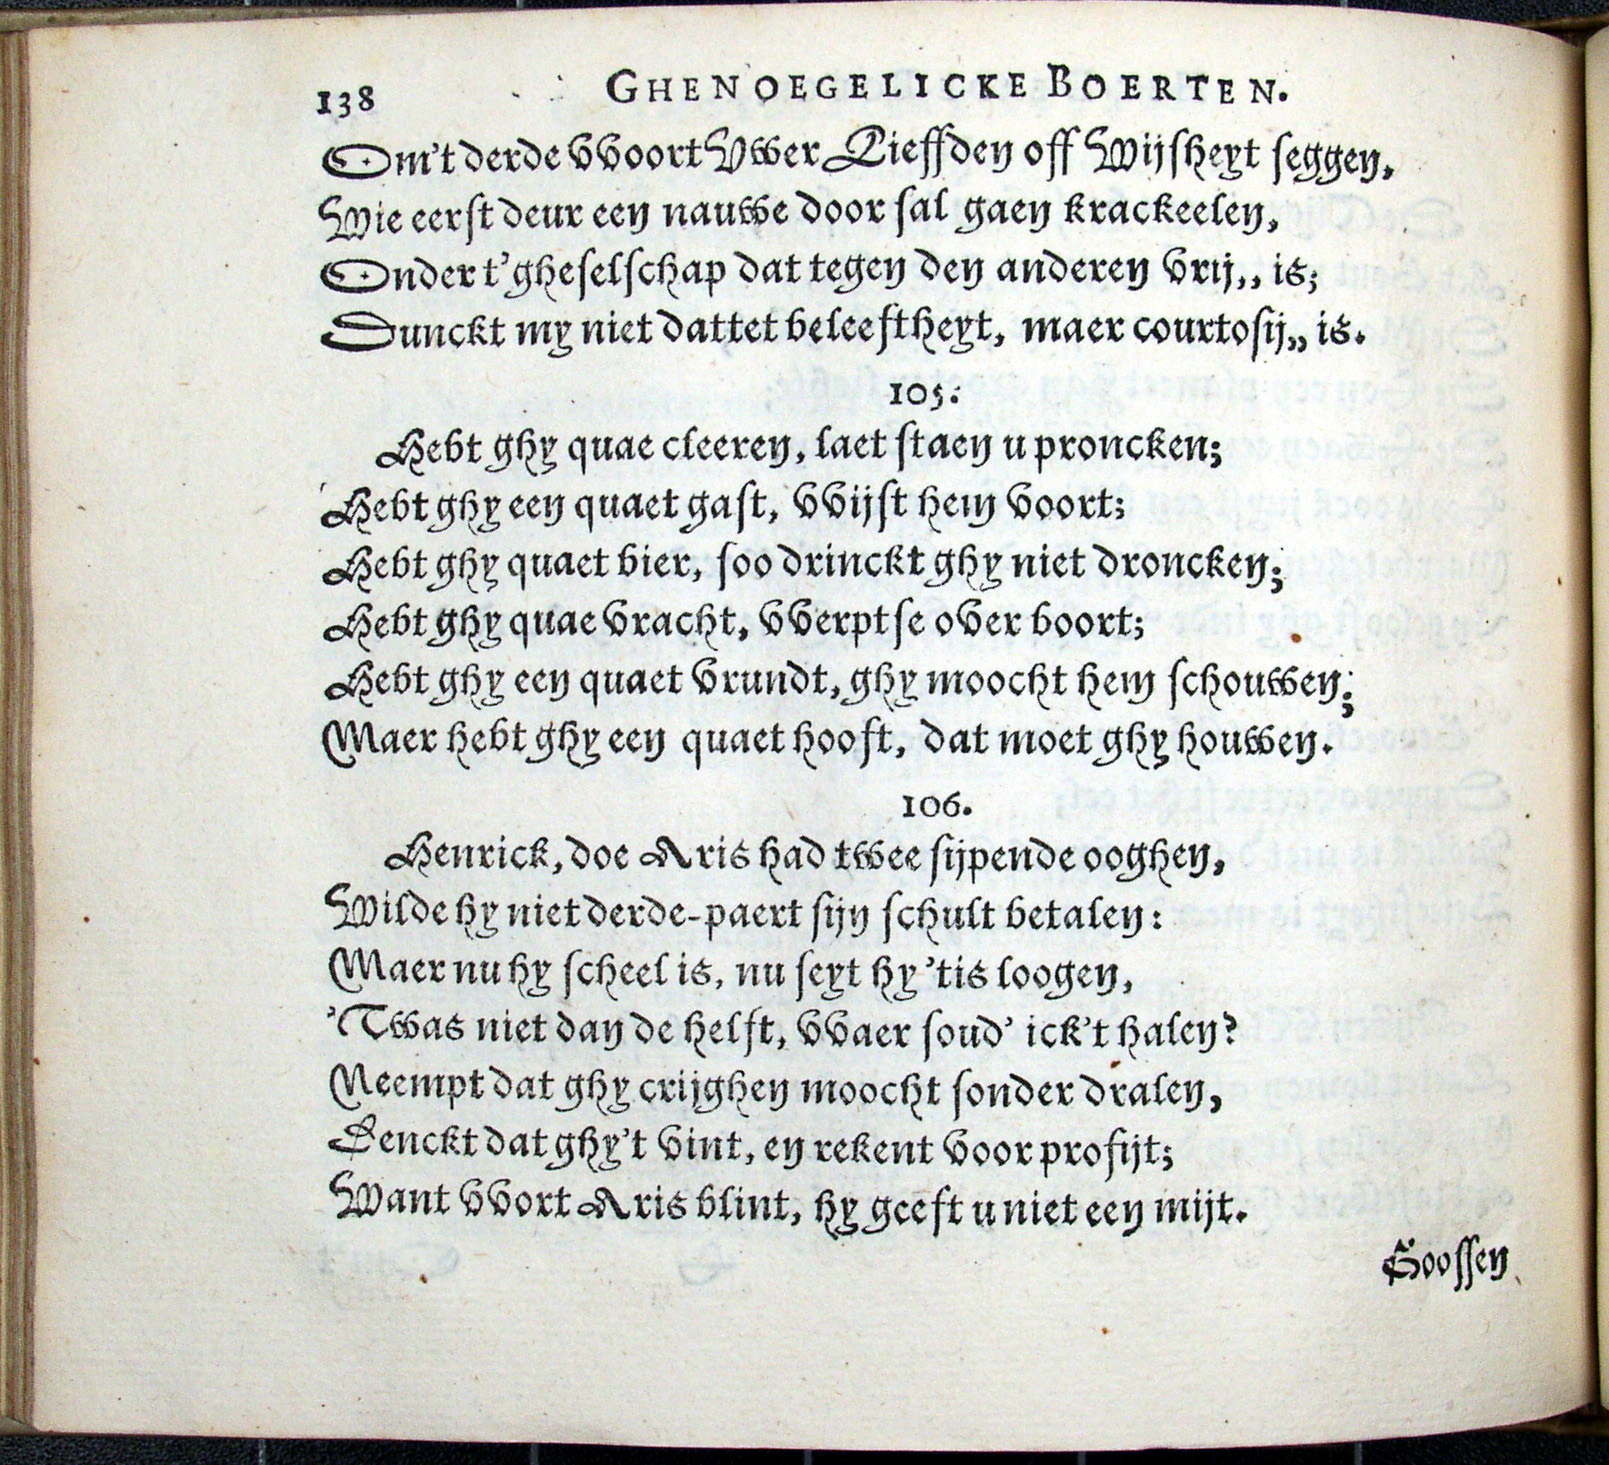 138 GHENOEGELICKE BOERTEN.
Om't derde vvoort Vwer Lieffden off Wijsheyt seggen,
Wie eerst deur een nauwe door sal gaen krackeelen,
Onder t'gheselschap dat tegen den anderen vrij,, is;
Dunckt my niet dattet beleeftheyt, maer courtosij,, is.
105.
Hebt ghy quae cleeren, laet staen u proncken;
Hebt ghy een quaet gast, vvijst hem voort;
Hebt ghy quaet bier, soo drinckt ghy niet droncken;
Hebt ghy quae vracht, vverptse over boort;
Hebt ghy een quaet vrundt, ghy moocht hem schouwen;
Maer hebt ghy een quaet hooft, dat moet ghy houwen.
106.
Henrick, doe Aris had twee sijpende ooghen,
Wilde hy niet derde-paert sijn schult betalen:
Maer nu hy scheel is, nu seyt hy 'tis loogen,
'Twas niet dan de helft, vvaer soud' ick't halen?
Neempt dat ghy crijghen moocht sonder dralen,
Denckt dat ghy't vint, en rekent voor profijt;
Want vvort Aris blint, hy geeft u niet een mijt.
Goossen